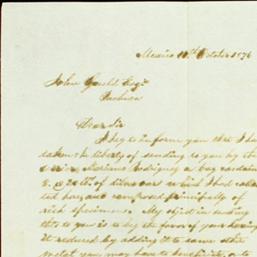 Mexico 10th October 1876
John Gould Esqr
Pachuca
Dear Sir
I beg to inform you that I have
taken the liberty of sending to you by the
Mariano Rodriguez a bag containing
of silver ore which I had
and composed principally of
rich specimens. My object in sending
this to you is to beg the favor of your having
it reduced by adding it to some other
metal you may have to beneficiate, or to